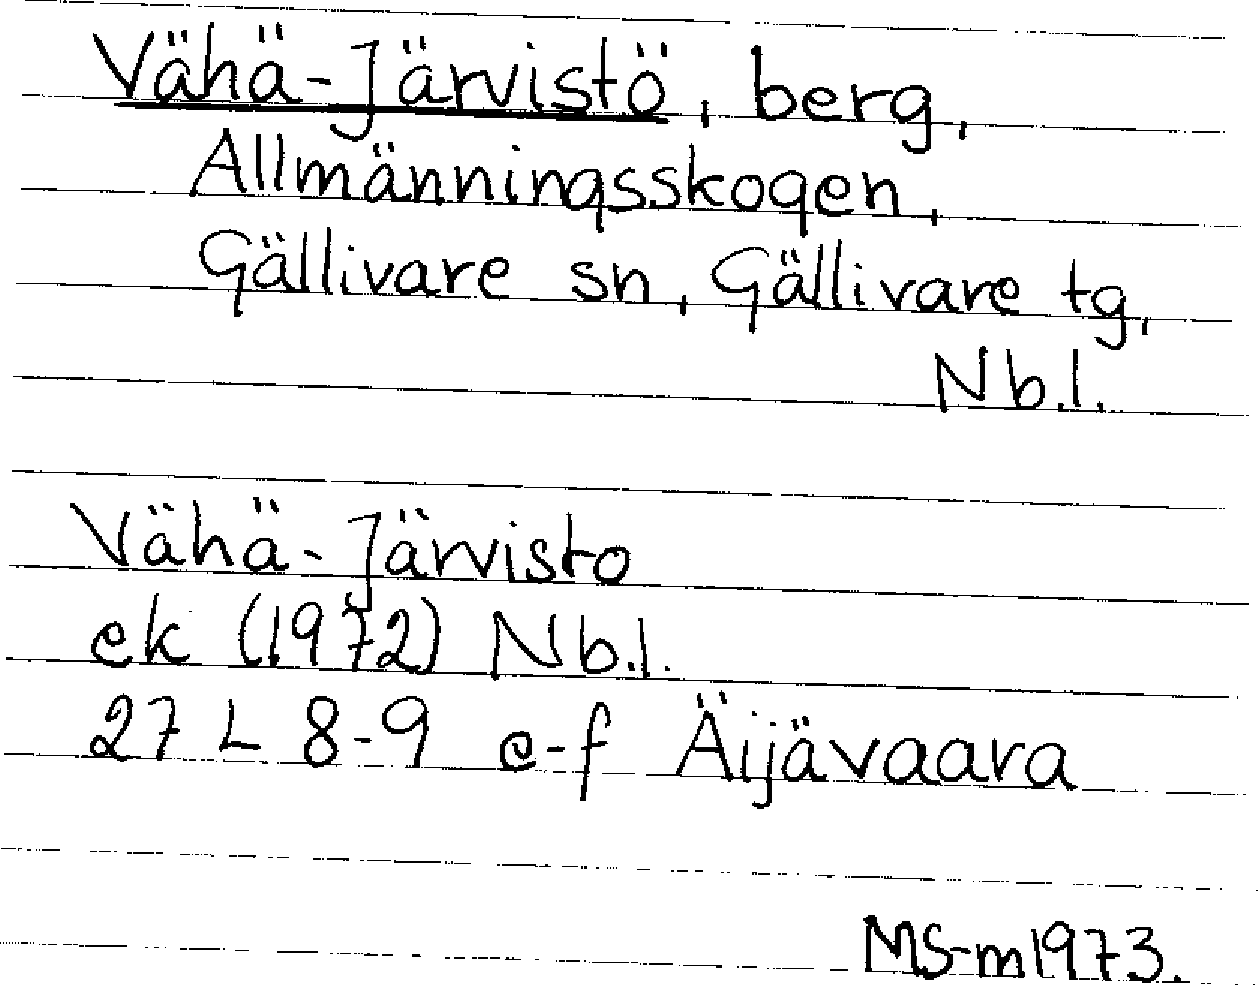 Vähä-Järvistö, berg,
Allmänningsskogen,
Gällivare sn, Gällivare tg,
Nb.l.
Vähä-Järvisto
ek (1972) Nb.l.
27 L 8-9 e-f Äijävaara
MS-m1973.